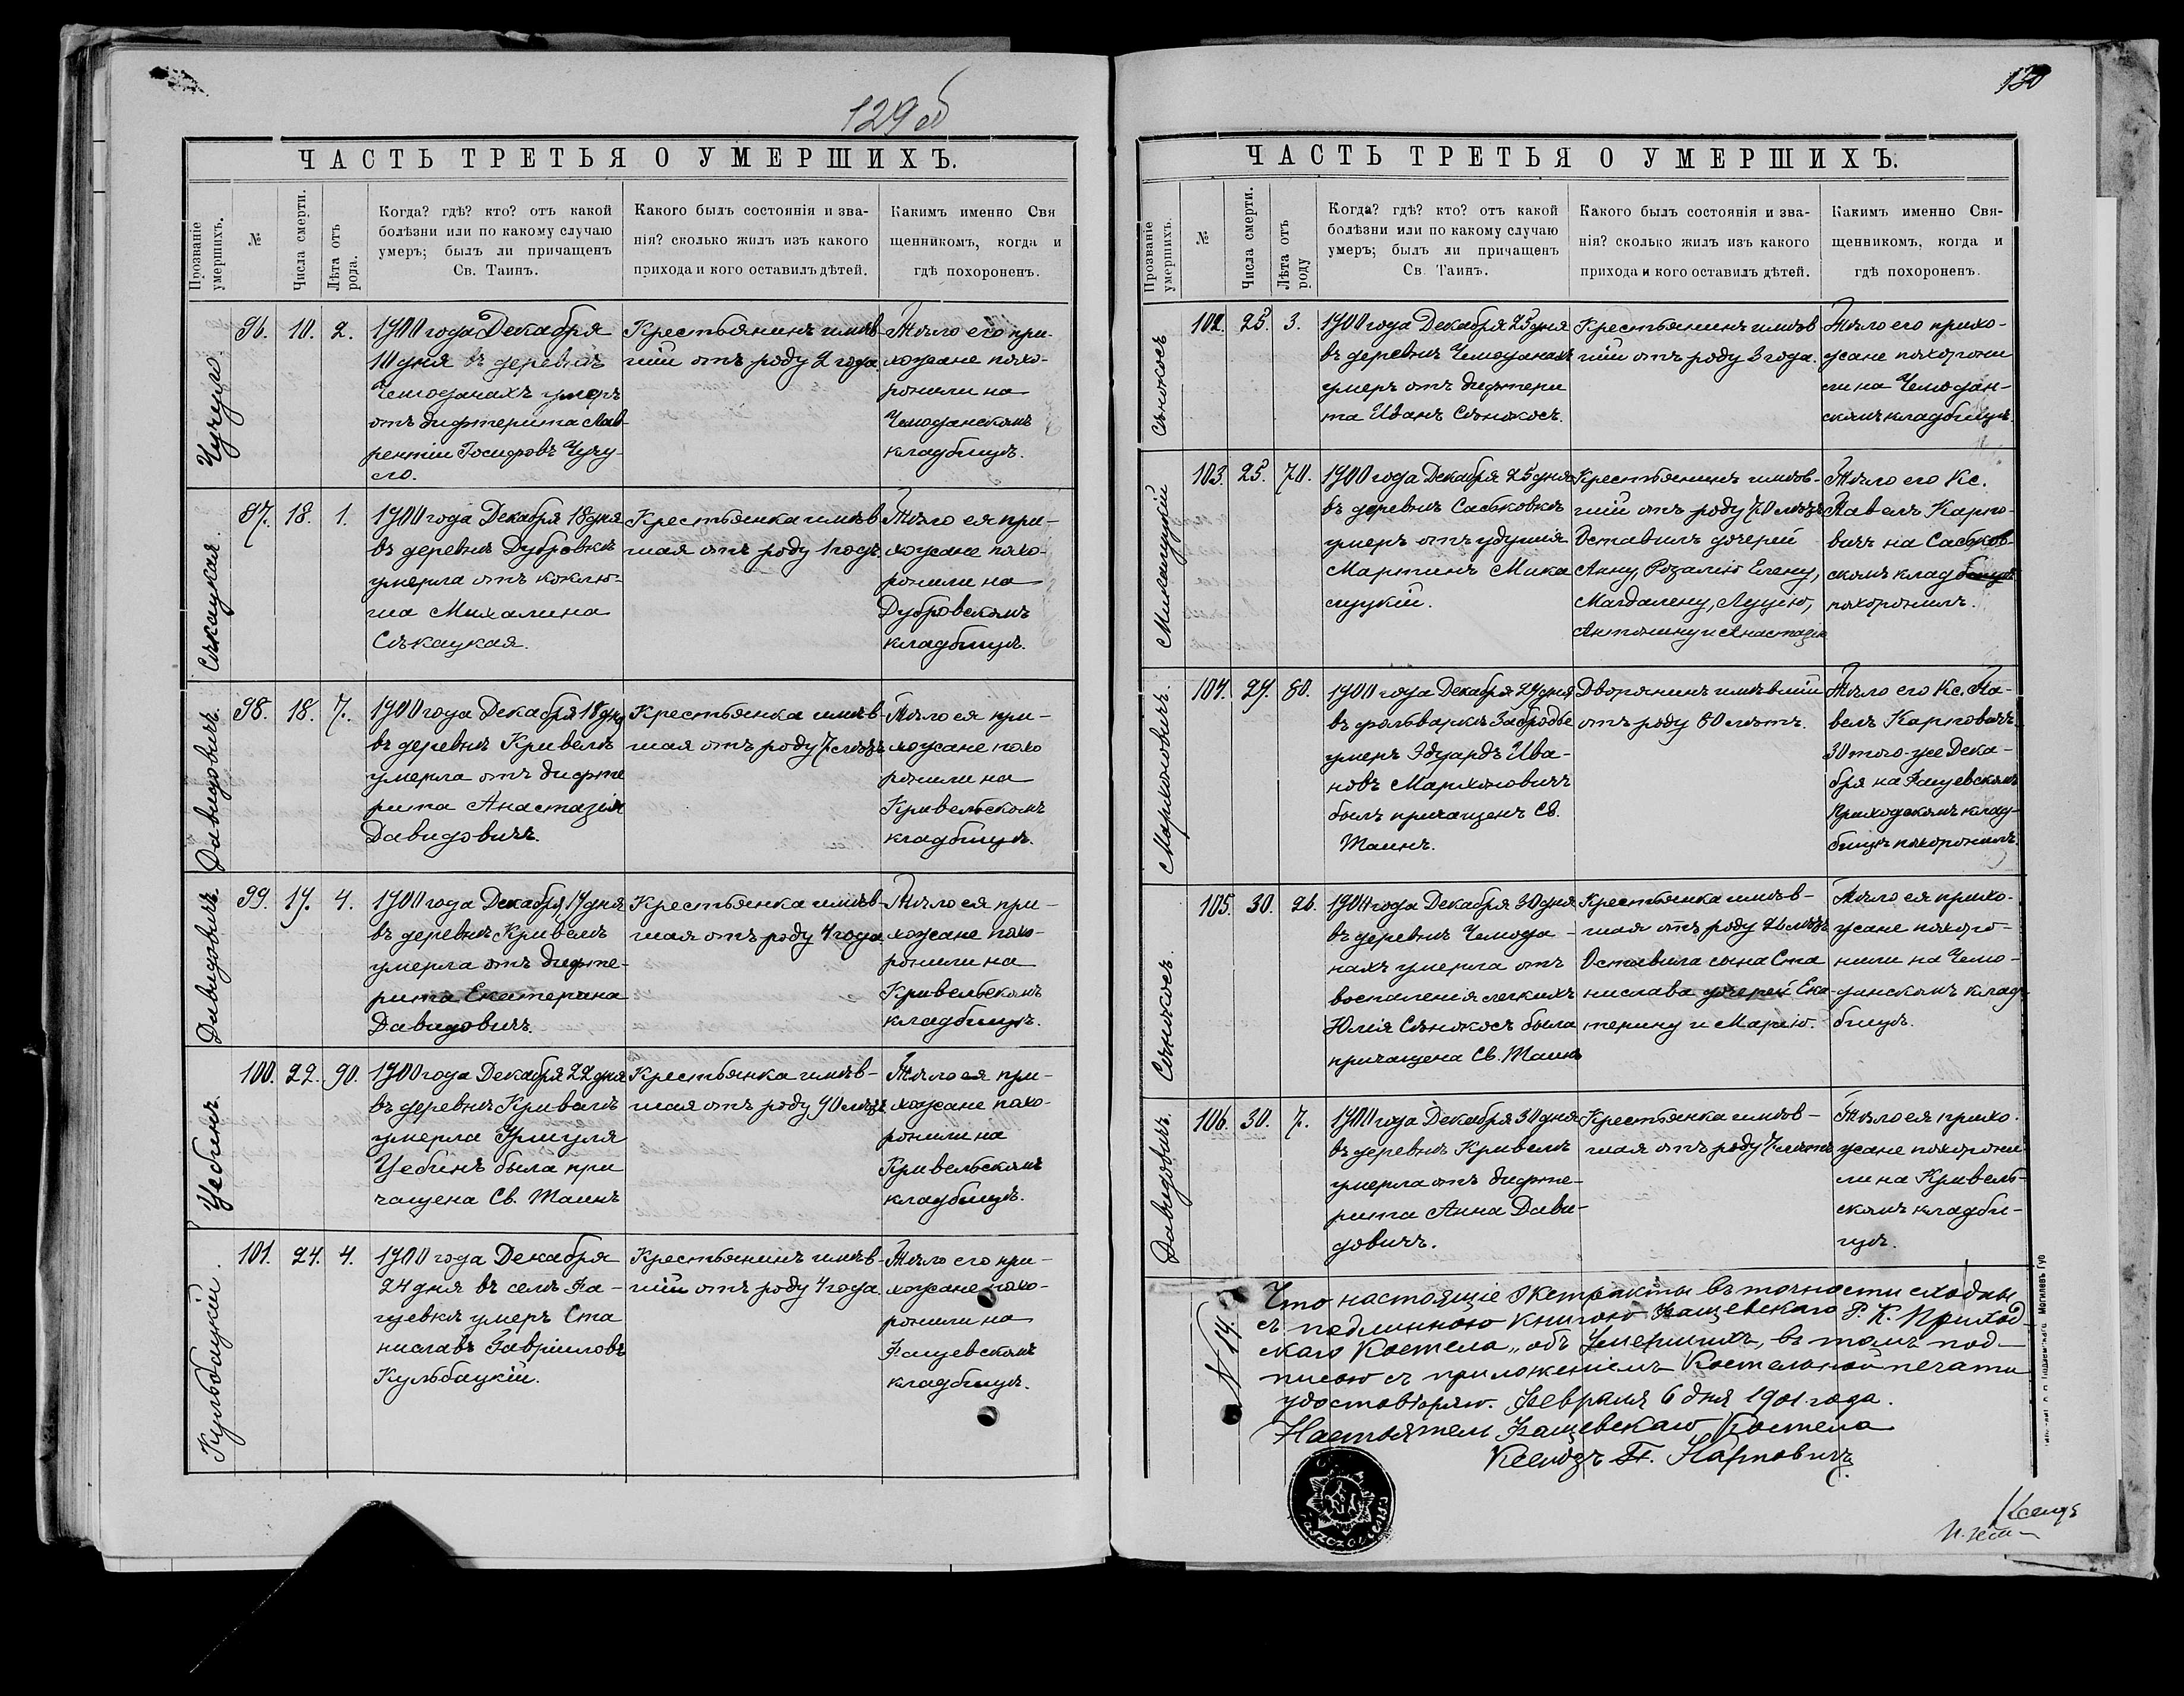 129 об
ЧАСТЬ ТРЕТЬЯ О УМЕРШИХЪ.
Прозваніе умершихъ.
№
Числа смерти.
Лѣта отъ рода.
Когда? гдѣ? кто? отъ какой
болѣзни или по какому случаю
умеръ; былъ ли причащенъ
Св. Таинъ.
Какого былъ состоянія и зва-
нія? сколько жилъ изъ какого
прихода и кого оставилъ дѣтей.
Какимъ именно Свя
щенникомъ, когда и
гдѣ похороненъ.
Чучуло.
96. 10. 2.
1900 года Декабря
10 дня въ деревнѣ
Чемоданахъ умеръ
отъ дифтерита Лав-
рентій Іосифовъ Чучу-
ло.
Крестьянинъ имѣв-
шій отъ роду 2 года
Тѣло его при-
хожане похо-
ронили на
Чемоданскомъ
кладбищѣ.
Сѣкацкая.
97. 18. 1.
1900 года Декабря 18 дня
въ деревнѣ Дубровкѣ
умерла отъ коклю-
ша Михалина
Сѣкацкая.
Крестьянка имѣв-
шая отъ роду 1 годъ
Тѣло ея при-
хожане похо-
ронили на
Дубровскомъ
кладбищѣ.
Давидовичъ.
98. 18. 7.
1900 года Декабря 18 дня
въ деревнѣ Кривелѣ
умерла отъ дифте
рита Анастазія
Давидовичъ.
Крестьянка имѣв-
шая отъ роду 7 лѣтъ
Тѣло ея при-
хожане похо
ронили на
Кривельскомъ
кладбищѣ.
Давидовичъ.
99. 19. 4.
1900 года Декабря 19 дня
въ деревнѣ Кривелѣ
умерла отъ дифте-
рита Екатерина
Давидовичъ.
Крестьянка имѣв-
шая отъ роду 4 года
Тѣло ея при-
хожане похо-
ронили на
Кривельскомъ
кладбищѣ.
Цебинъ.
100. 22. 90.
1900 года Декабря 22 дня
въ деревнѣ Кривелѣ
умерла Уршуля
Цебинъ была при
чащена Св. Таинъ
Крестьянка имѣв-
шая отъ роду 90 лѣтъ
Тѣло ея при-
хожане похо-
ронили на
Кривельскомъ
кладбищѣ.
Кульбацкій.
101. 24. 4.
1900 года Декабря
24 дня въ селѣ Фа-
щевкѣ умеръ Ста
ниславъ Гавріиловъ
Кульбацкій.
Крестьянинъ имѣв-
шій отъ роду 4 года.
Тѣло его при-
хожане похо-
ронили на
Фащевскомъ
кладбищѣ.
130
ЧАСТЬ ТРЕТЬЯ О УМЕРШИХЪ.
Прозваніе умершихъ.
№
Числа смерти.
Лѣта отъ роду
Когда? гдѣ? кто? отъ какой
болѣзни или по какому случаю
умеръ; былъ ли причащенъ
Св. Таинъ.
Какого былъ состоянія и зва-
нія? сколько жилъ изъ какого
прихода и кого оставилъ дѣтей.
Какимъ именно Свя-
щенникомъ, когда и
гдѣ похороненъ.
Сѣнокосъ
102. 25. 3.
1900 года Декабря 25 дня
въ деревнѣ Чемоданахъ
умеръ отъ дифтери
та Иванъ Сѣнокосъ.
Крестьянинъ имѣв
шій отъ роду 3 года.
Тѣло его прихо-
жане похорони
ли на Чемодан-
скомъ кладбищѣ.
Микашуцкій
103. 25. 70.
1900 года Декабря 25 дня
въ деревнѣ Саськовкѣ
умеръ отъ удушія
Мартинъ Мика
шуцкій.
Крестьянинъ имѣв-
шій отъ роду 70 лѣтъ
Оставилъ дочерей
Анну, Розалію Елену,
Магдалену, Луцію,
Антонину и Анастазію
Тѣло его Кс.
Павелъ Карпо-
вичъ на Саськов-
скомъ кладбищѣ
похоронилъ.
104. 29. 80.
1900 года Декабря 29 дня
въ фольваркѣ Забродье
умеръ Эдуардъ Ива-
новъ
былъ причащенъ Св.
Таинъ.
Дворянинъ имѣвшій
отъ роду 80 лѣтъ.
Тѣло его Кс. Па-
велъ Карповичъ
30 того-же Дека-
бря на Фащевскомъ
Приходскомъ клад-
бищѣ похоронилъ.
Сѣнокосъ.
105. 30. 26.
1900 года Декабря 30 дня
въ деревнѣ Чемода-
нахъ умерла отъ
воспаленія легкихъ
Юлія Сѣнокосъ была
причащена Св. Таинъ
Крестьянка имѣв-
шая отъ роду 26 лѣтъ
Оставила сына Ста
нислава дочерей Ека
терину и Марію.
Тѣло ея прихо-
жане похоро-
нили на Чемо-
данскомъ клад-
бищѣ.
Давидовичъ.
106. 30. 7.
1900 года Декабря 30 дня
въ деревнѣ Кривелѣ
умерла отъ дифте-
рита Анна Дави-
довичъ.
Крестьянка имѣв-
шая отъ роду 7 лѣтъ
Тѣло ея прихо-
жане похорони
ли на Кривель-
скомъ кладби-
щѣ.
Что настоящіе экстракты въ точности сходны
съ подлинною книгою Фащевскаго Р. К. Приход-
скаго Костела „объ Умершихъ, въ томъ под-
писью съ приложеніемъ Костельной печати
удостовѣряю. Февраля 6 дня 1901 года.
Настоятель Фащевскаго Костела
Ксендзъ П. Карповичъ
Ксендзъ